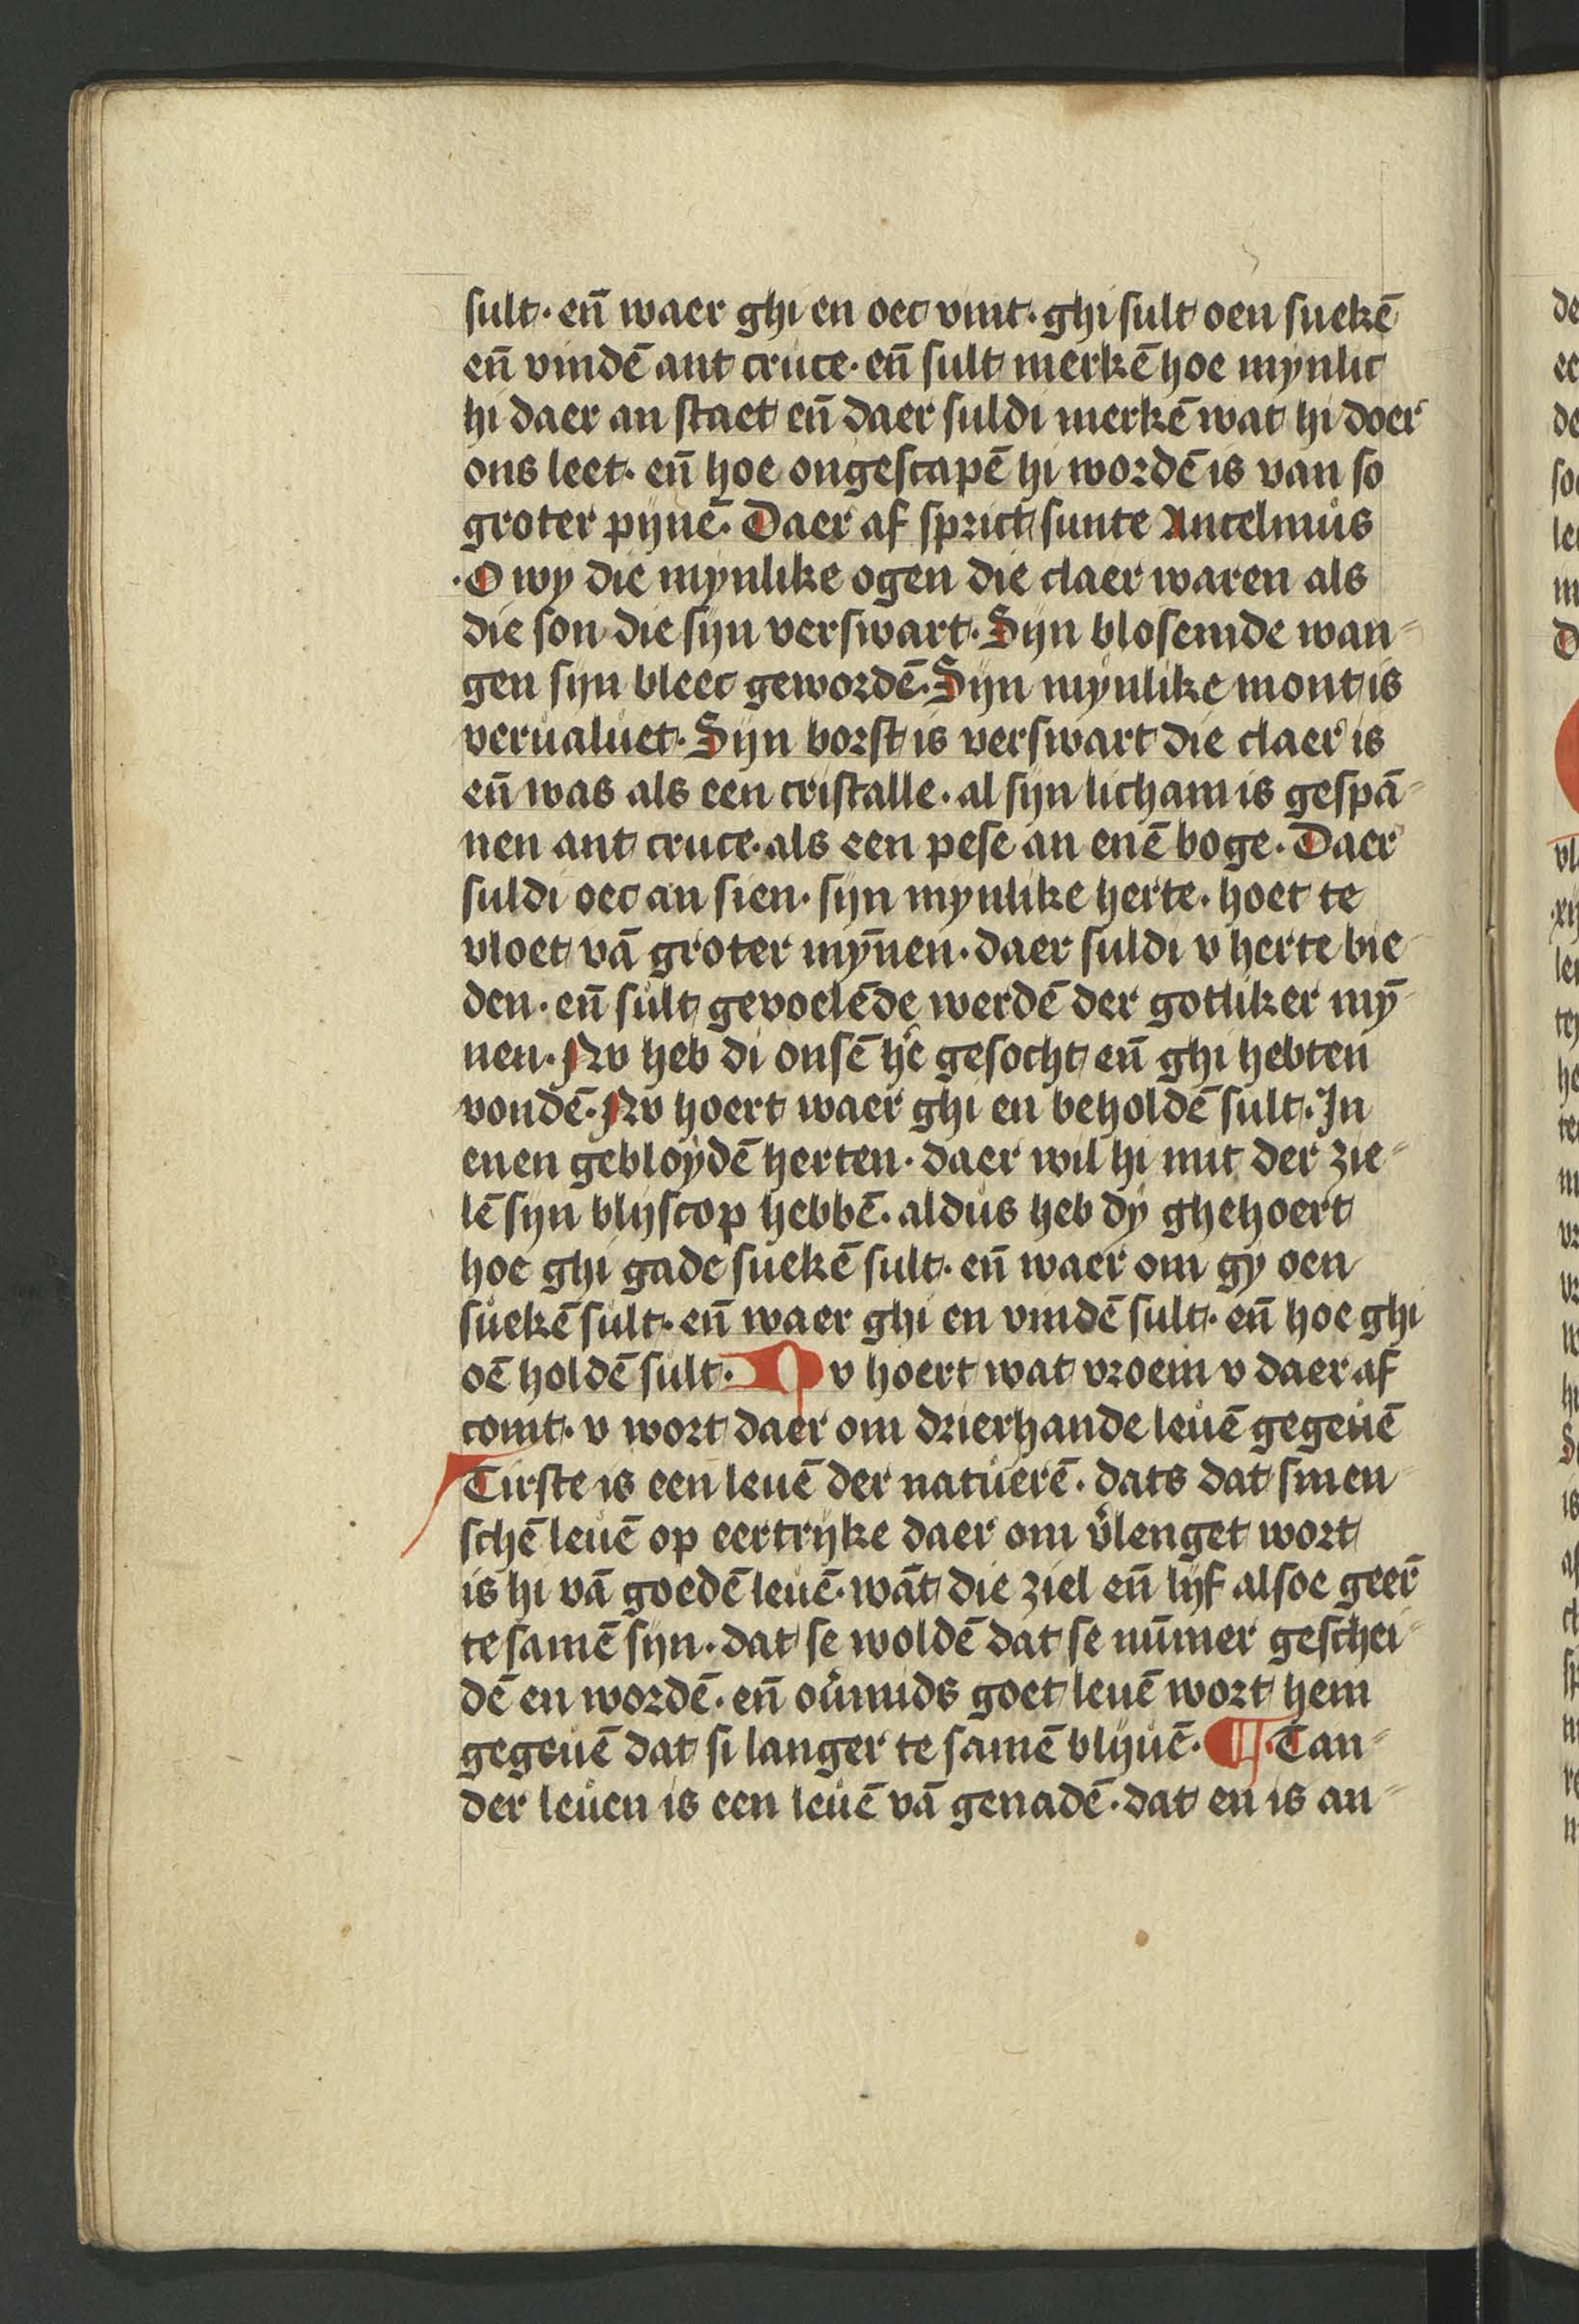 sult· en̄ waer ghi en oec vint· ghi sult oen suekē
en̄ vindē ant cruce· en̄ sult merkē hoe mynlic
hi daer an staet en̄ daer suldi merkē wat hi doer
ons leet· en̄ hoe ongescapē hi wordē is van so
groter pijnē· Daer af sprict sunte Ancelmus
·O wy die mynlike ogen die claer waren als
die son die sijn verswart· Sijn blosemde wan-
gen sijn bleec gewordē· Sijn mynlike mont is
verualuet· Sijn borst is verswart die claer is
en̄ was als een cristalle· al sijn licham is gespā-
nen ant cruce· als een pese an enē boge· Daer
suldi oec an sien· sijn mynlike herte· hoet te
vloet vā groter mȳnen· daer suldi v herte bie
den· en̄ sult gevoelēde werdē der gotliker mȳ-
nen· Nv heb di onsē hē gesocht en̄ ghi hebten
vondē· Nv hoert waer ghi en beholdē sult· In
enen gebloydē herten· daer wil hi mit der zie-
lē sijn blijscop hebbē· aldus heb dy ghehoert
hoe ghi gade suekē sult· en̄ waer om gy oen
suekē sult· en̄ waer ghi en vindē sult· en̄ hoe ghi
oē holdē sult· Nv hoert wat vroem v daer af
comt· v wort daer om drierhande leuē gegeuē
Tirste is een leuē der natuerē· dats dat smen
schē leuē op eertrijke daer om v̄lenget wort
is hi vā goedē leuē· wāt die ziel en̄ lijf alsoe geer̄
te samē sijn· dat se woldē dat se nūmer geschei-
dē en wordē· en̄ oūmids goet leuē wort hem
gegeuē dat si langer te samē blijuē· ¶· Tan-
der leuen is een leuē vā genadē· dat en is an-